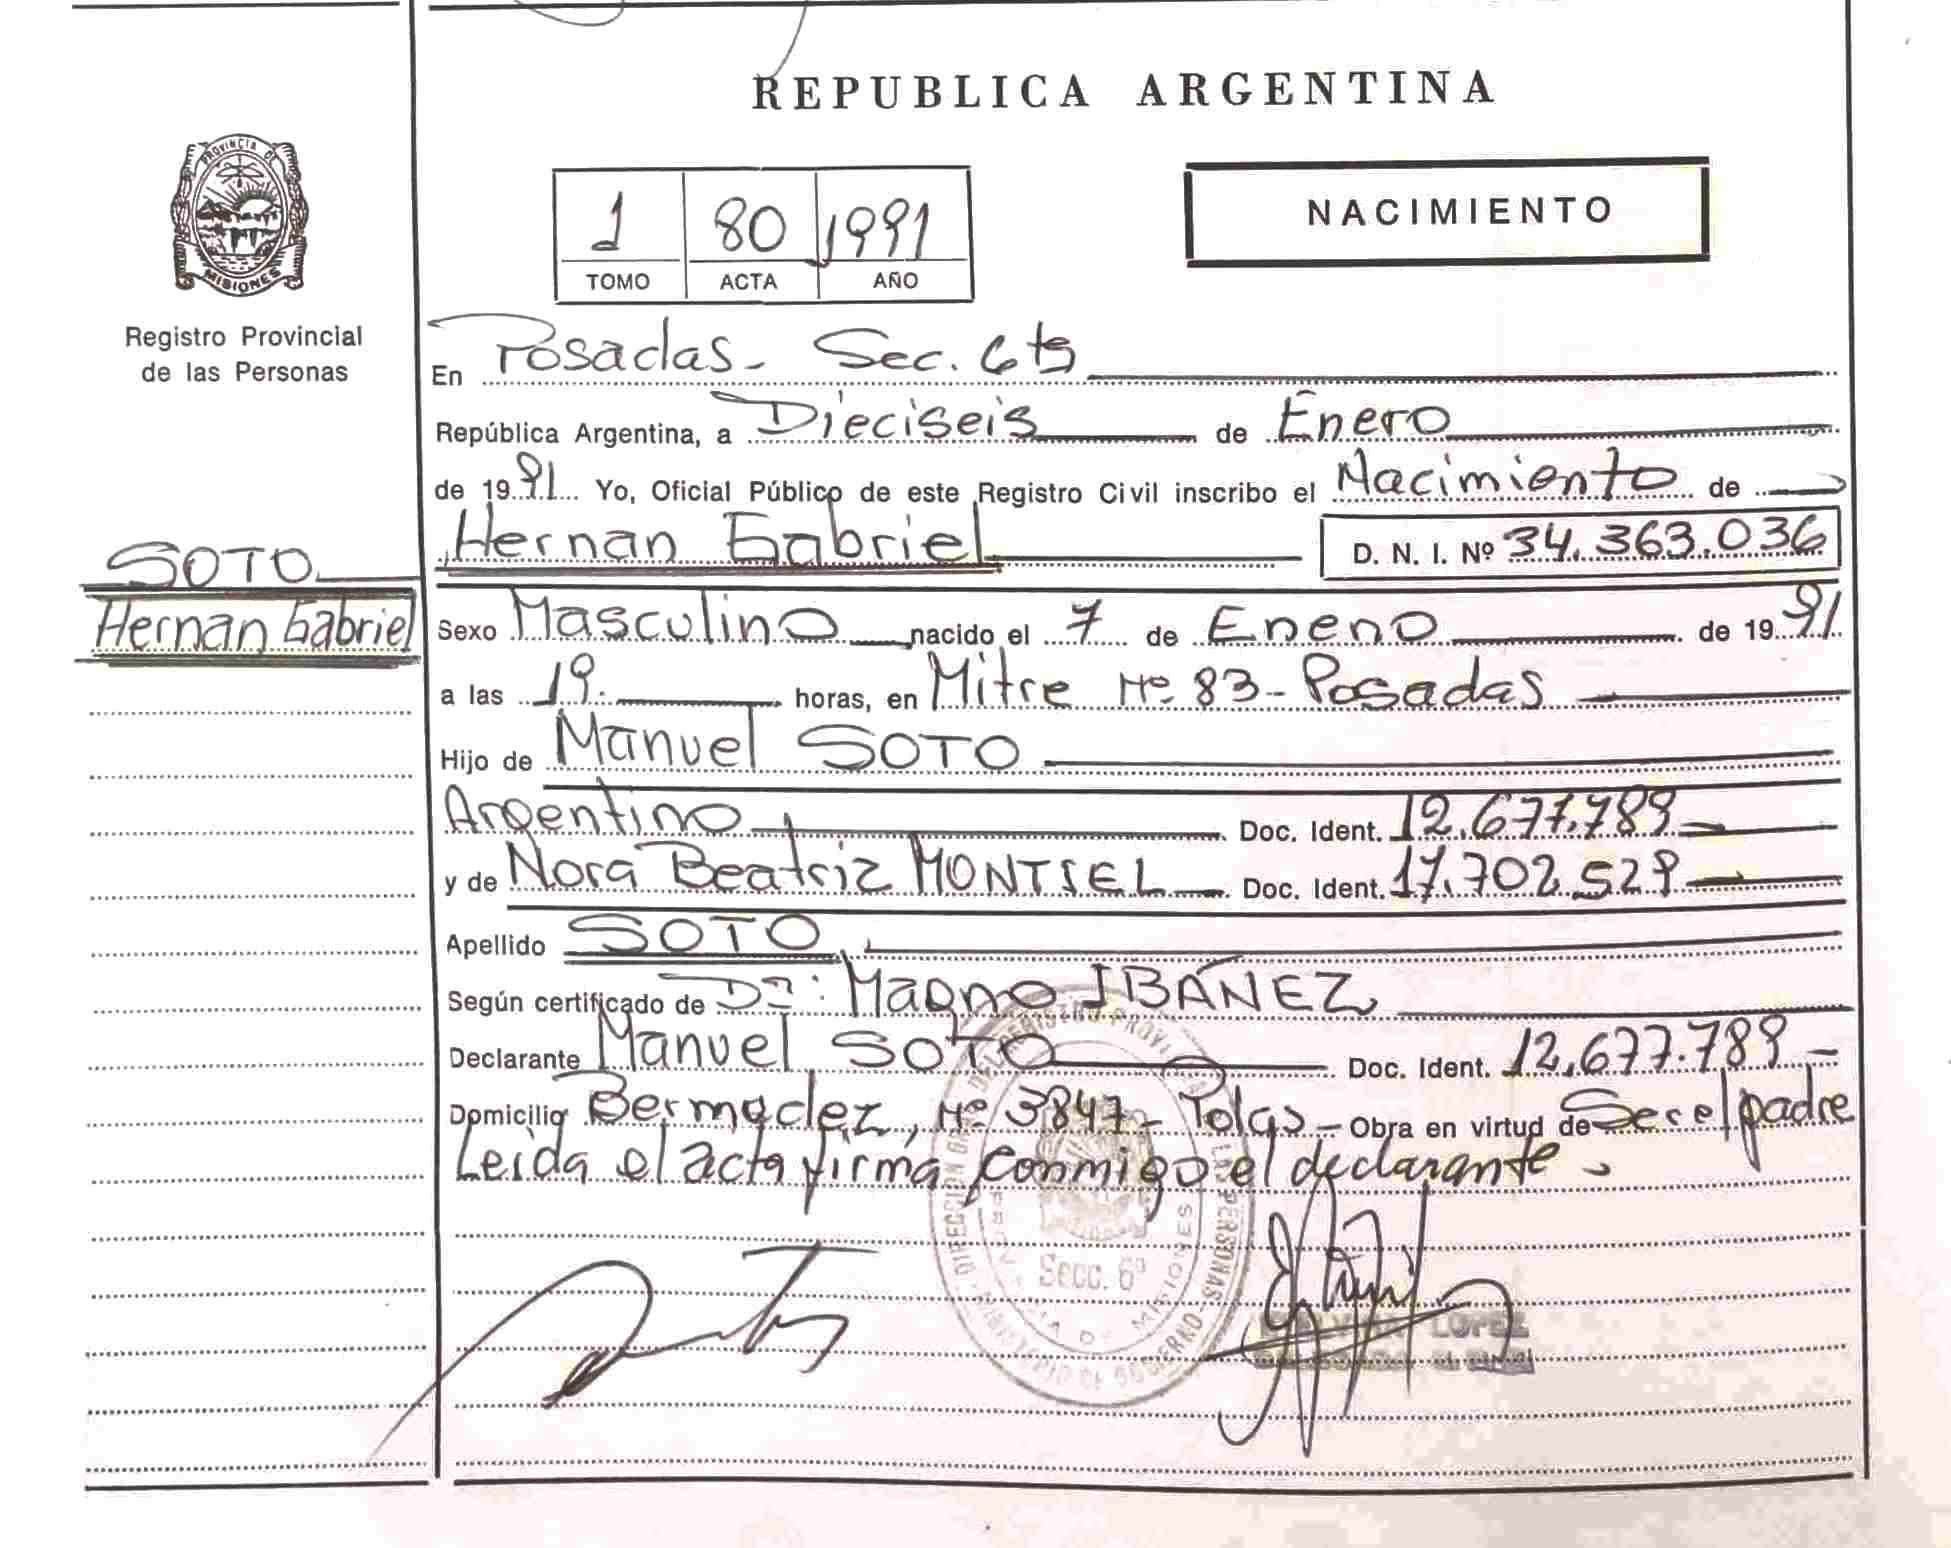 REPUBLICA ARGENTINA
PROVINCIA DE
MISIONES
Registro Provincial
de las Personas
1 80 1991
TOMO ACTA AÑO
NACIMIENTO
En Posadas - Sec. 6ta
República Argentina, a Dieciseis de Enero
de 1991 Yo, Oficial Público de este Registro Civil inscribo el Nacimiento de
Hernan Gabriel D. N. I. Nº 34.363.036
SOTO
Hernan Gabriel
Sexo Masculino nacido el 7 de Enero de 1991
a las 19. horas, en Mitre Nº 83 - Posadas
Hijo de Manuel SOTO
Argentino Doc. Ident. 12.677.789
y de Nora Beatriz MONTIEL Doc. Ident. 17.702.529
Apellido SOTO
Según certificado de Dr: Magno IBÁÑEZ
Declarante Manuel SOTO Doc. Ident. 12.677.789
Domicilio Bermudez, Nº 3847 - Pdas - Obra en virtud de Ser el padre
Leida el acta firma conmigo el declarante.
DIRECCION GRAL. DEL REGISTRO PROVINCIAL DE LAS PERSONAS
MINISTERIO DE GOBIERNO
PROVINCIA DE MISIONES
Secc. 6ª
LOPEZ